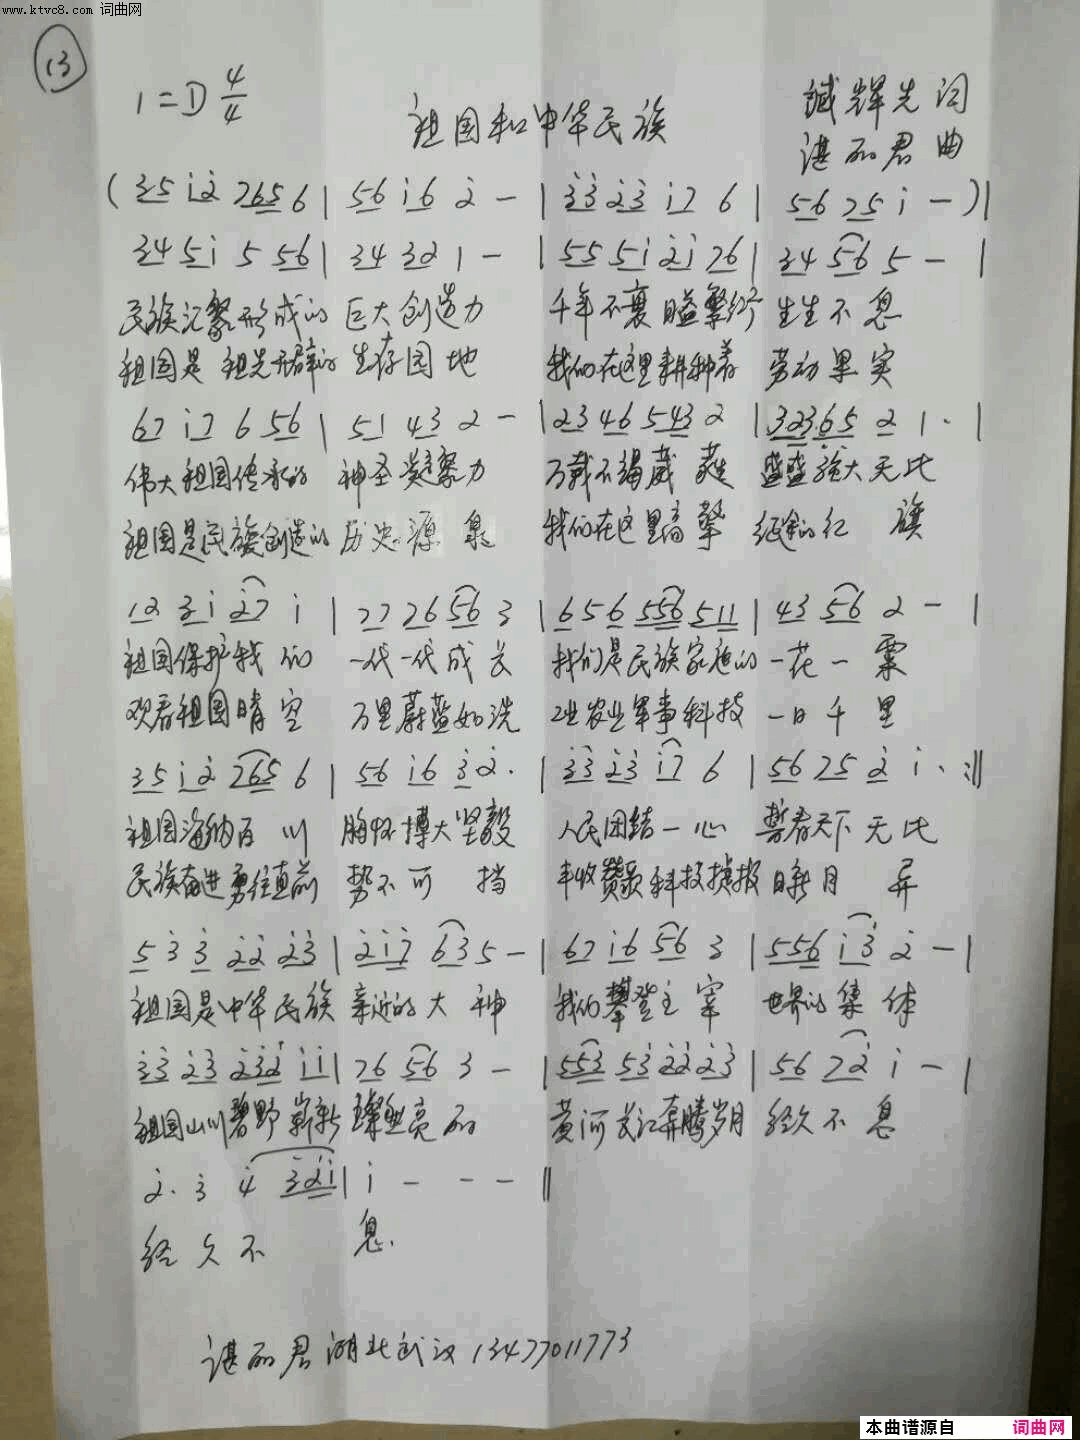 www.ktvc8.com 词曲网
13
1=D 4/4
祖国和中华民族
臧辉先词
谌丽君曲
(35 i2 765 6 | 56 i6 2 - | 33 23 i7 6 | 56 75 i - )|
34 5i 5 56 | 34 32 1 - | 55 5i 2i 76 | 34 56 5 - |
民族汇聚形成的 巨大创造力 千年不衰 繁衍 生生不息
祖国是 祖先开辟的 生存园地 我们在这里耕种着 劳动果实
67 i7 6 56 | 51 43 2 - | 23 46 543 2 | 323 65 2 1 · |
伟大祖国传承的 神圣凝聚力 万载不竭 盛盛强大无比
祖国是民族创造的 历史源泉 我们在这里高擎 的红旗
12 3i 27 i | 77 76 56 3 | 6 5 6 556 511 | 43 56 2 - |
祖国保护我们 一代一代成长 我们是民族家园的 一花一粟
观看祖国晴空 万里蔚蓝如洗 工业农业军事科技 一日千里
35 i2 765 6 | 56 i6 3 2 · | 33 23 i7 6 | 56 75 2 i · :||
祖国海纳百川 胸怀博大坚毅 人民团结一心 天下无比
民族奋进勇往直前 势不可挡 丰收赞歌科技捷报 日新月异
5 3 3 22 23 | 2i7 63 5 - | 67 i6 56 3 | 556 i3 2 - |
祖国是中华民族 亲近的大神 我们攀登主宰 世界的集体
33 23 232 ii | 76 56 3 - | 553 53 22 23 | 56 72 i - |
祖国山川碧野崭新 璀璨亮丽 黄河长江奔腾岁月 经久不息
2 · 3 4 32i | i - - - ||
经久不 息.
谌丽君湖北武汉13477011773
本曲谱源自 词曲网